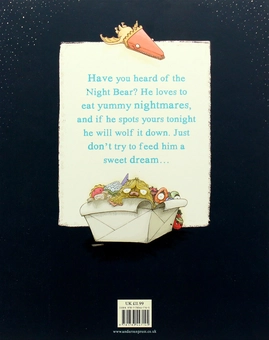 Have you heard of the
Night Bear? He loves to
eat yummy nightmares,
and if he spots yours tonight
he will wolf it down. Just
don't try to feed him a
sweet dream...
UK £6.99
www.andersenpress.co.uk